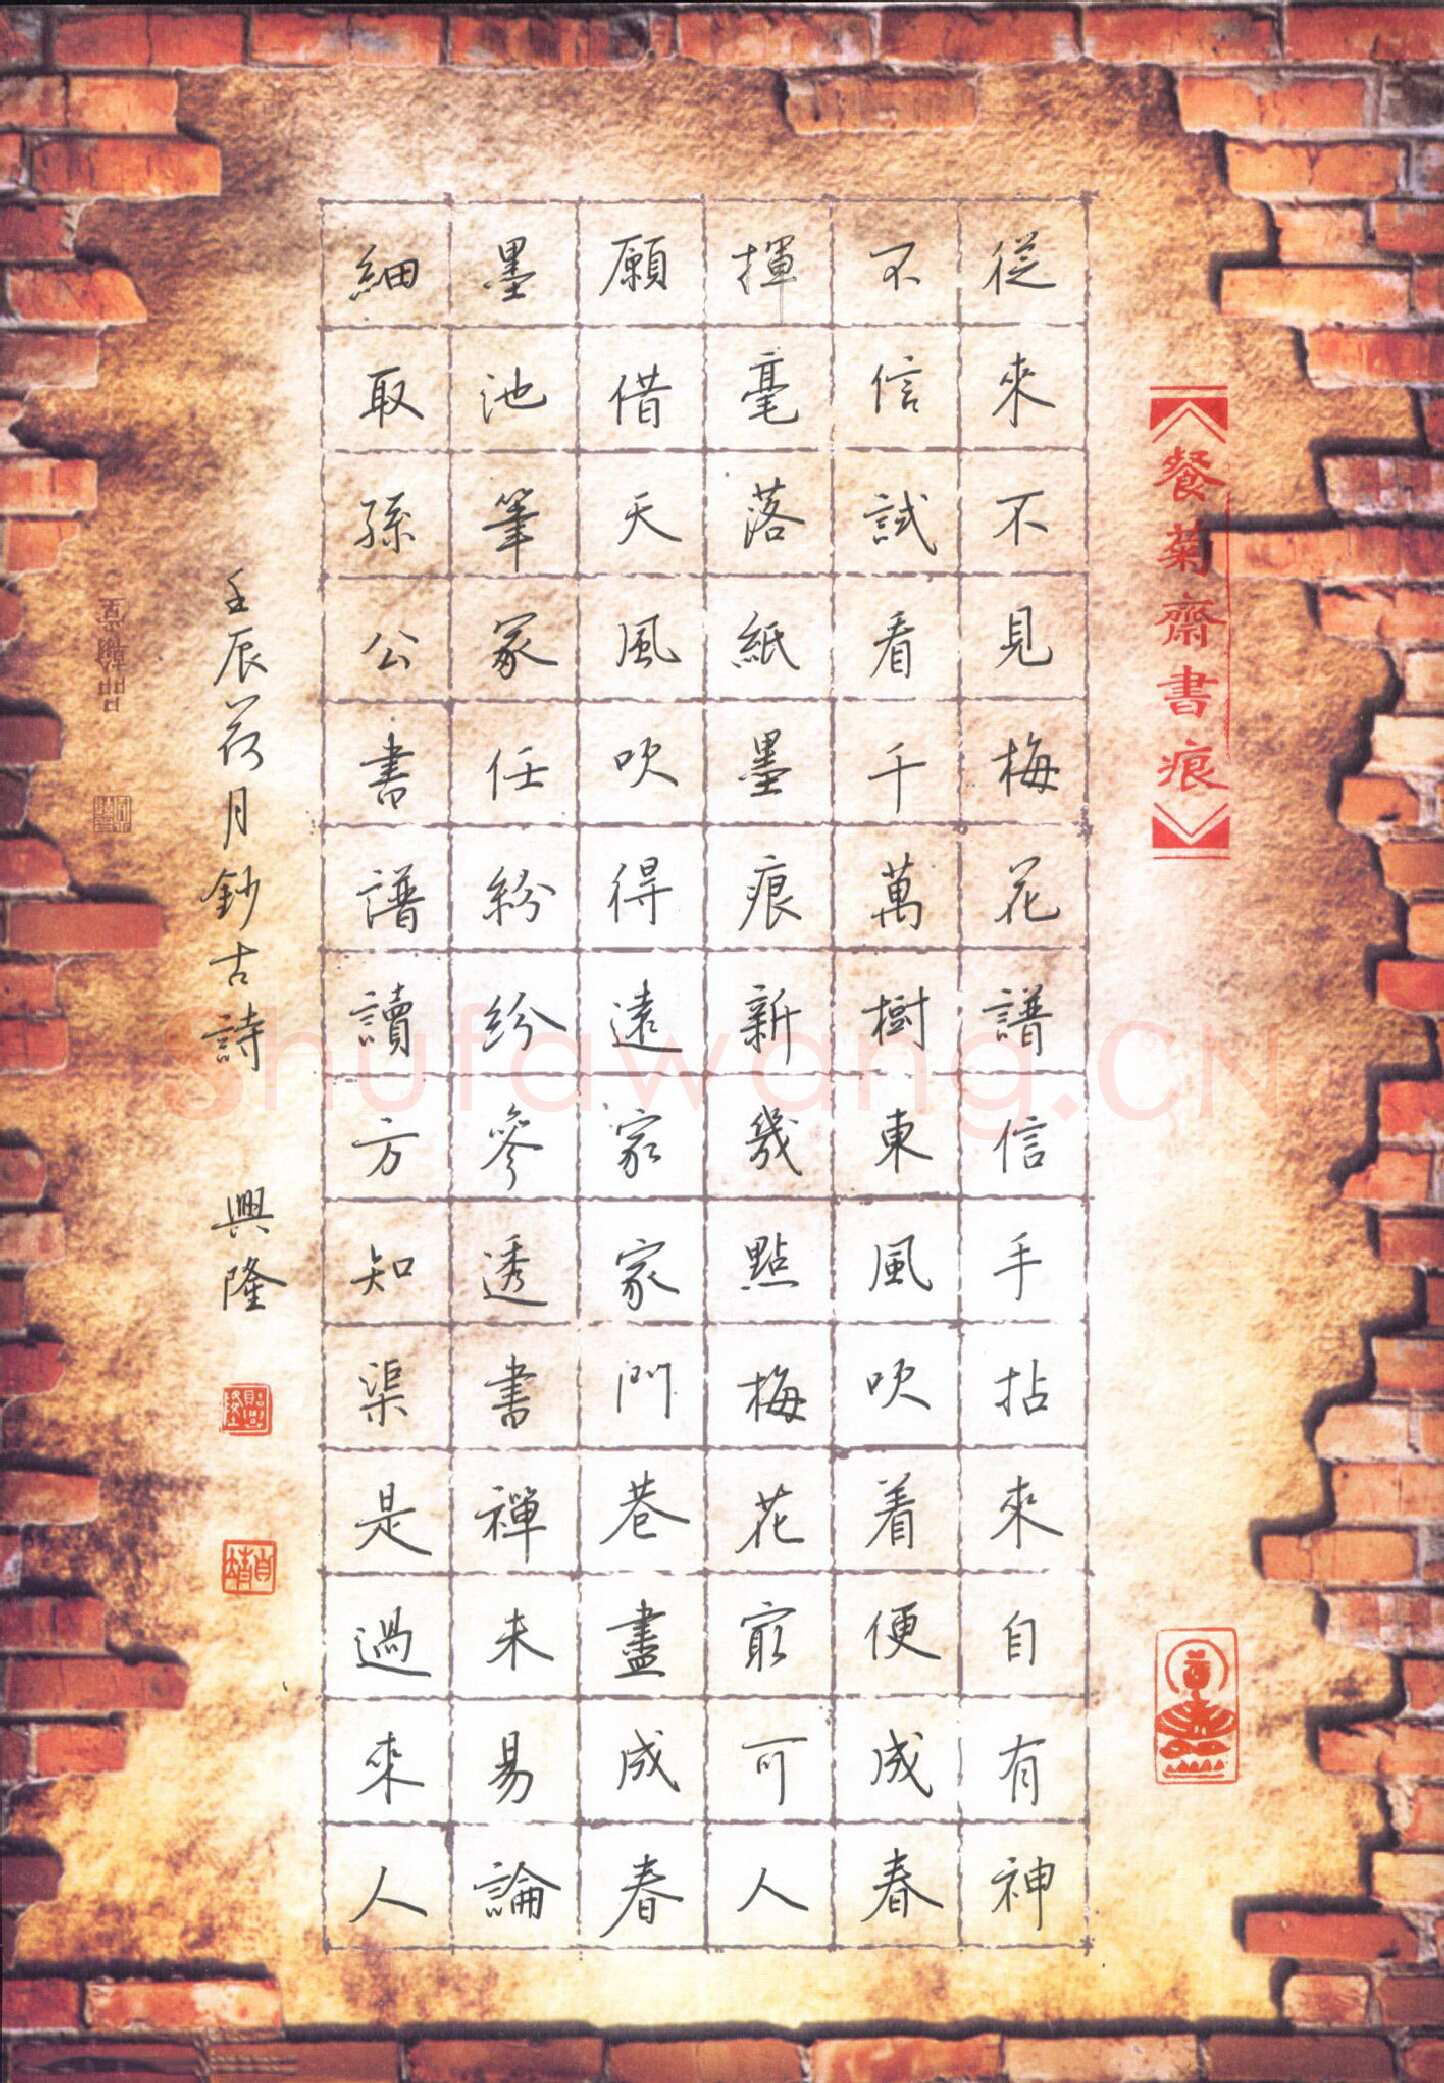 餐菊齋書痕
從來不見梅花譜信手拈來自有神
不信試看千萬樹東風吹着便成春
揮毫落紙墨痕新幾點梅花最可人
願借天風吹得遠家家門巷盡成春
墨池筆冢任紛紛參透書禪未易論
細取孫公書譜讀方知渠是過來人
壬辰荷月鈔古詩 興隆
shufawang.CN